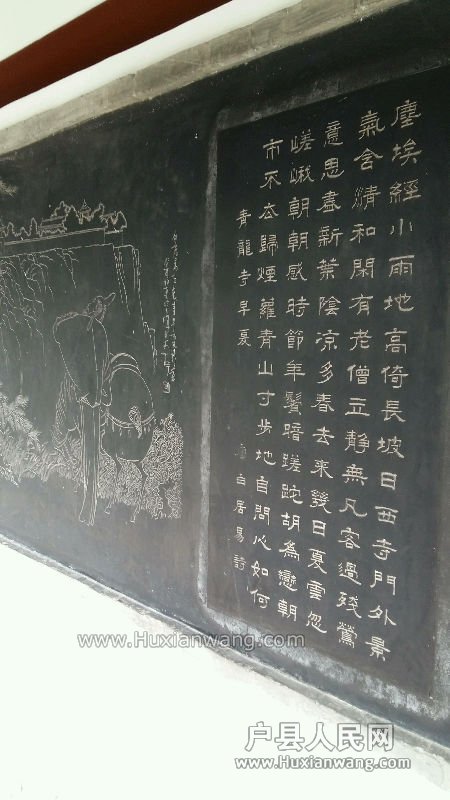 塵埃經小雨地高倚長坡日西寺門外景
氣含清和閑有老僧立靜無凡客過殘鶯
意思盡新葉陰凉多春去來幾日夏雲忽
嵯峨朝朝感時節年鬢暗蹉跎胡為戀朝
市不去歸煙蘿青山寸步地自問心如何
青龍寺早夏 唐白居易詩
www.Huxianwang.com
户县人民网
www.Huxianwang.com